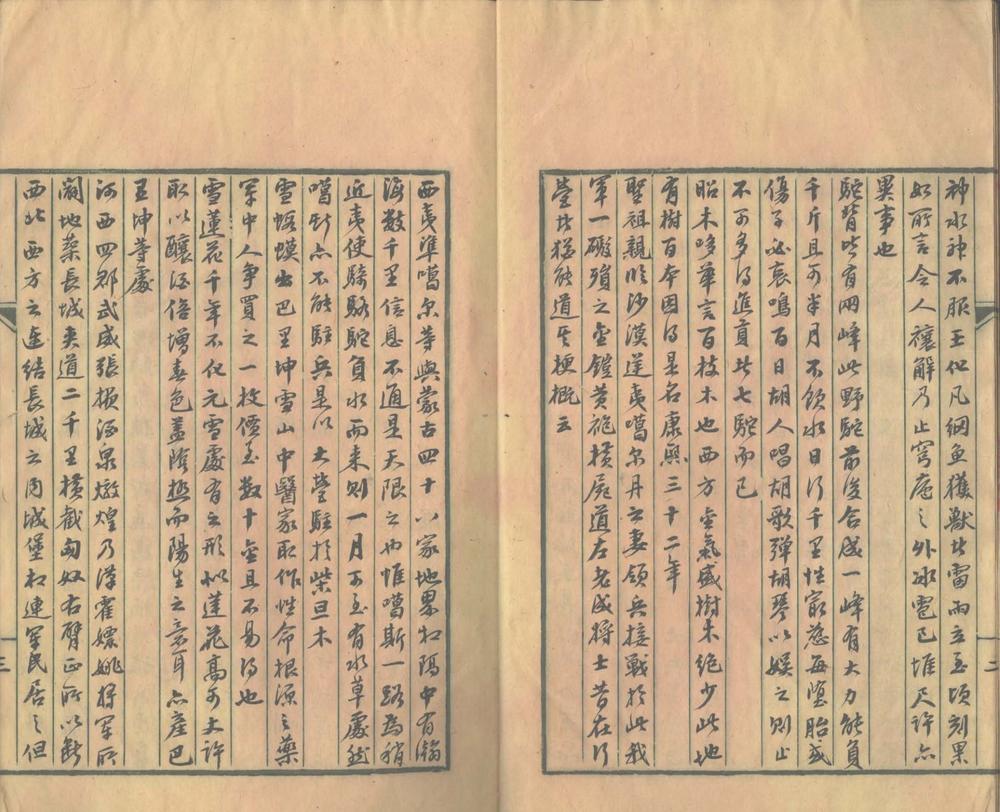 神水神不服王化凡網魚獲獸者雷雨立至頃刻果
如所言令人禳解乃止穹廬之外冰雹已堆尺許亦
異事也
駝背皆有兩峰此野駝前後合成一峰有大力能負
千斤且可半月不飲水日行千里性最慈每墮胎或
傷子必哀鳴百日胡人唱胡歌彈胡琴以娛之則止
不可多得進貢者七駝而已
昭木哆華言百枝木也西方金氣盛樹木絕少此地
有樹百本因得是名康熙三十二年
聖祖親臨沙漠逆夷噶尔丹之妻領兵接戰於此我
軍一礮殞之金鎧黃袍橫屍道左老成將士昔在行
營者猶能道其梗概云
西夷準噶尔等與蒙古四十八家地界相隔中有瀚
海數千里信息不通是天限之也惟噶斯一路為稍
近夷使騎駱駝負水而来則一月可至有水草處然
噶斯亦不能駐兵是以大營駐於柴旦木
雪蝦蟆出巴里坤雪山中醫家取作性命根源之藥
軍中人爭買之一枚價至數十金且不易得也
雪蓮花千年不化元雪處有之形似蓮花高可丈許
取以釀酒倍增春色蓋陰極而陽生之意耳亦產巴
里坤等處
河西四郡武威張掖酒泉燉煌乃漢霍嫖姚將軍所
闢地築長城夾道二千里橫截匈奴右臂正所以斷
西北西方之連結長城之內城堡相連軍民居之但
二
三